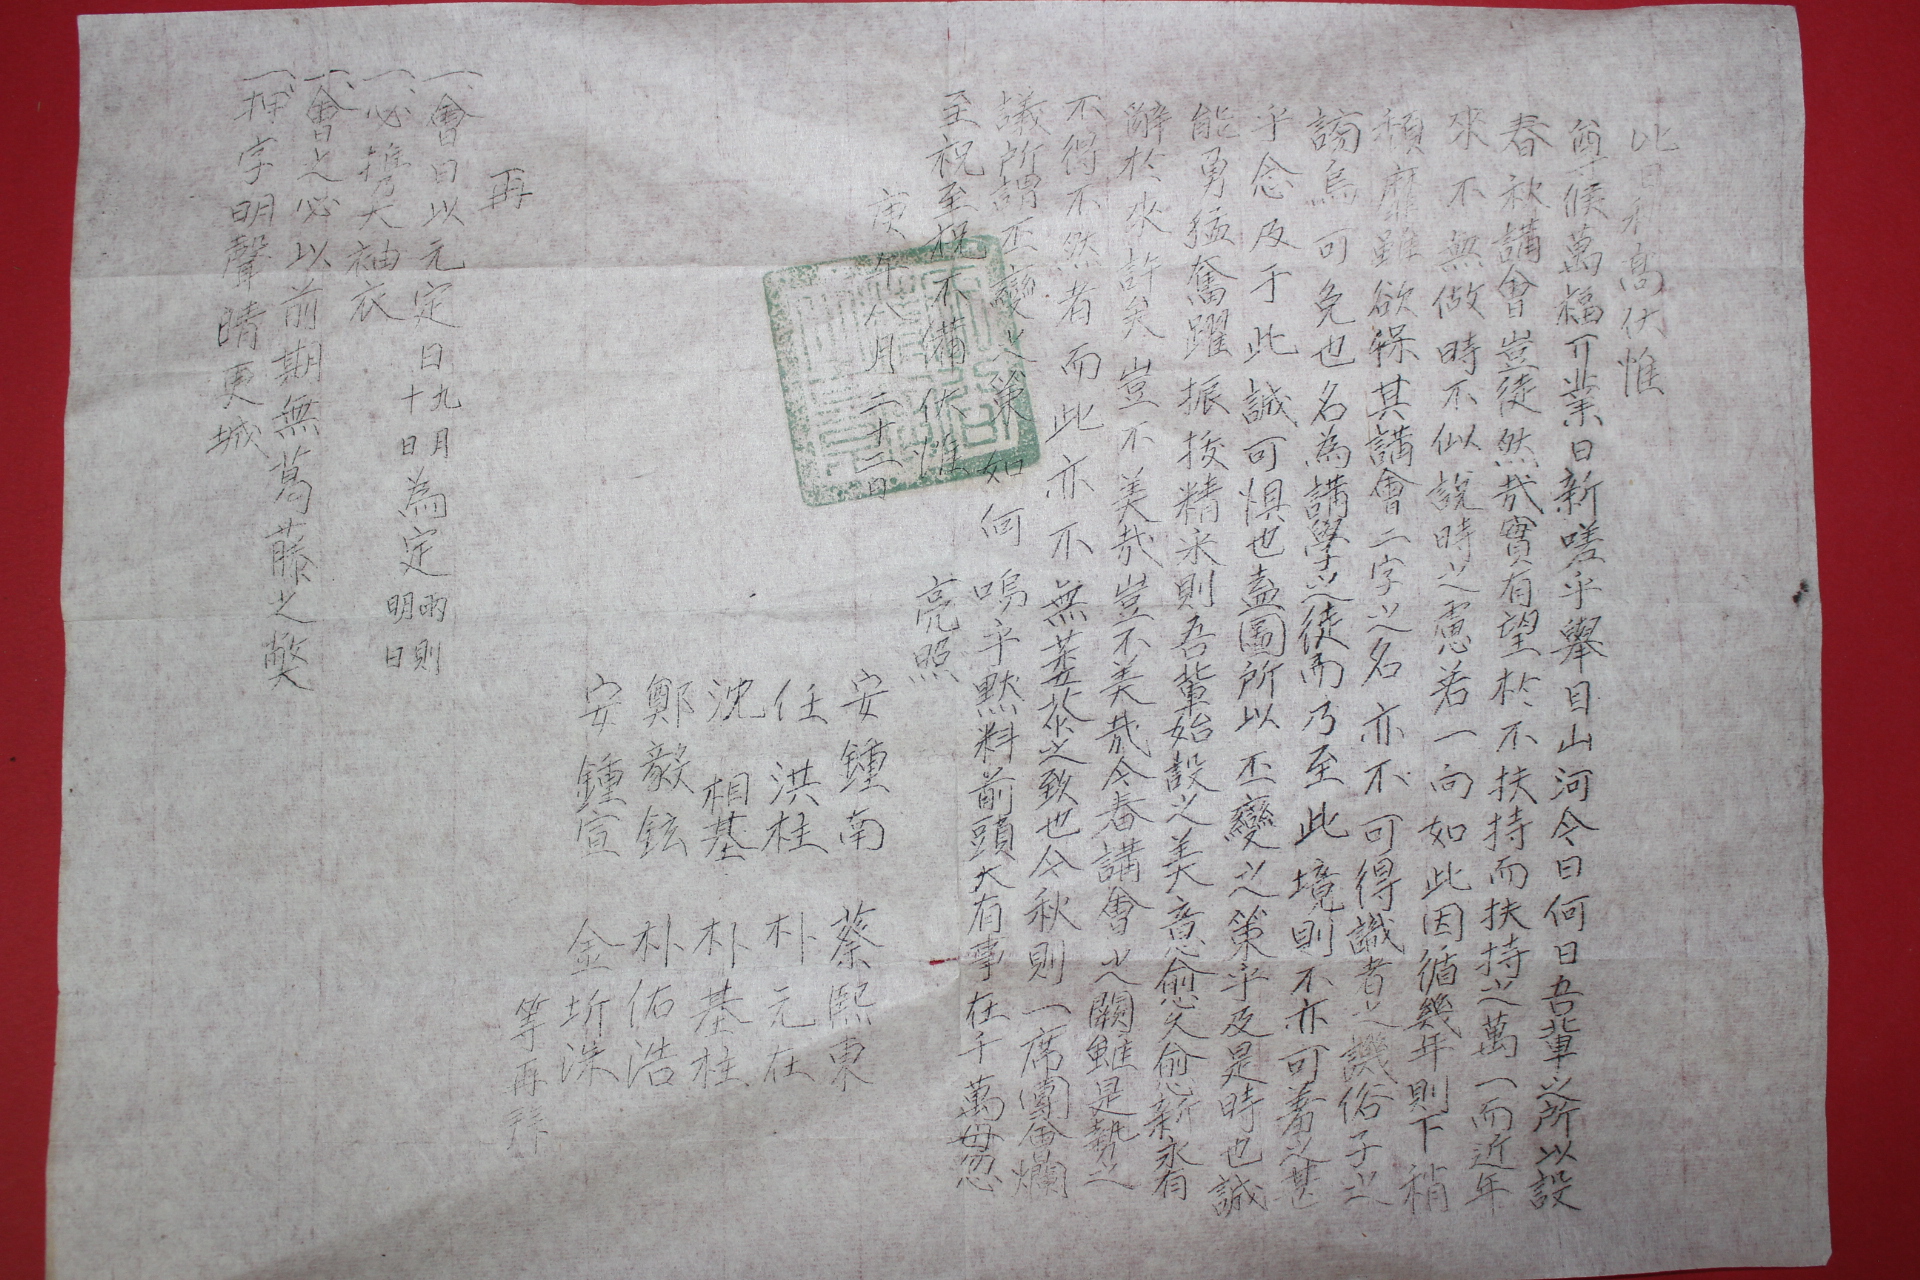 比日秋高伏惟
尊候萬福丌業日新嗟乎擧目山河今日何日吾輩之所以設
春秋講會豈徒然哉實有望於不扶持而扶持之萬一而近年
來不無做時不似說時之慮若一向如此因循幾年則下稍
頹靡雖欲保其講會二字之名亦不可得識者之譏俗子之
謗烏可免也名為講學之徒而乃至此境則不亦可羞之甚
乎念及于此誠可惧也盍圖所以丕變之策乎及是時也誠
能勇猛奮躍振拔精永則吾輩始設之美意愈久愈新永有
辭於來許矣豈不美哉豈不美哉今春講會之闕雖是勢之
不得不然者而此亦不無萎苶之致也今秋則一席團會爛
議所謂丕變之策如何嗚乎黙料前頭大有事在千萬毋忽
至祝至祝不備伏惟
亮照
庚年八月二十二日
安鍾南 蔡熙東
任洪柱 朴元在
沈相基 朴基柱
鄭毅鉉 朴佑浩
安鍾宣 金圻洙
等再拜
再
一會日以元定日九月十日為定雨則明日
一必携大袖衣
一會之必以前期無葛藤之獘
一押字明聲晴更城